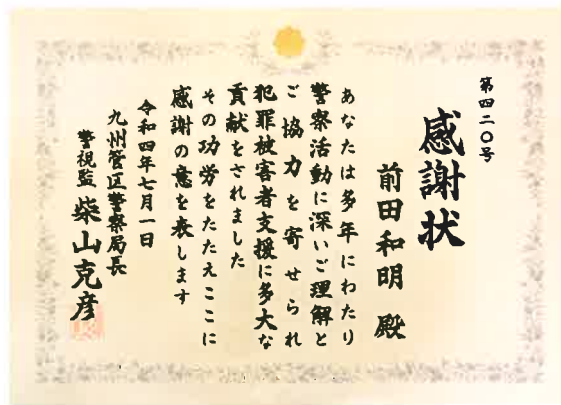 第四二〇号
感謝状
前田和明 殿
あなたは多年にわたり
警察活動に深いご理解と
ご協力を寄せられ
犯罪被害者支援に多大な
貢献をされました
その功労をたたえここに
感謝の意を表します
令和四年七月一日
九州管区警察局長
警視監 柴山克彦